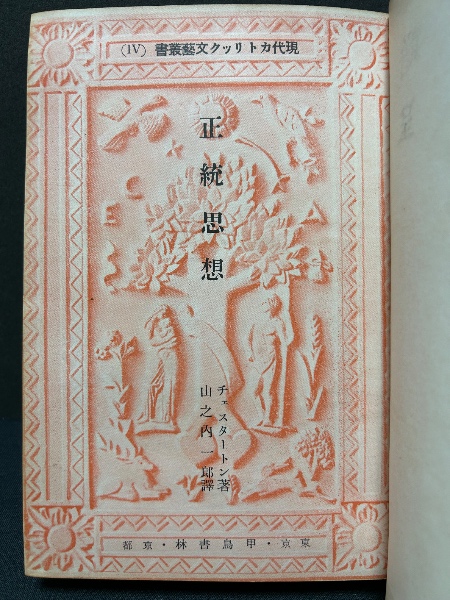 (Ⅳ) 書叢藝文クッリトカ代現
正統思想
チェスタートン著
山之内一郎譯
都京・林書鳥甲・京東